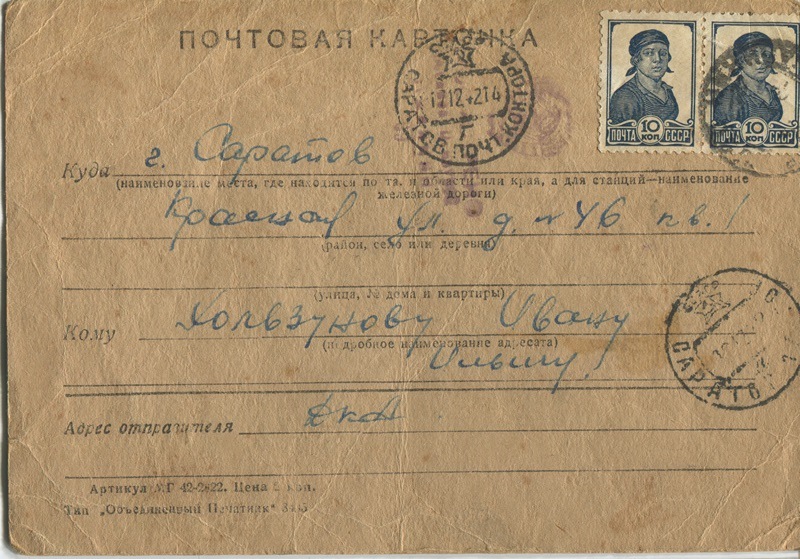 ПОЧТОВАЯ КАРТОЧКА
САРАТОВ ПОЧТ. КОНТОРА
ПОЧТА 10 КОП СССР
ПОЧТА 10 КОП СССР
Куда г. Саратов
(наименование места, где находится почта, и области или края, а для станций—наименование
железной дороги)
Красная ул. д. № 46 кв. 1
(район, село или деревня)
(улица, № дома и квартиры)
Кому Хользунову Ивану
(подробное наименование адресата)
Ильичу
САРАТОВ
Адрес отправителя
Артикул МГ 42-2-22. Цена 5 коп.
Тип. „Объединенный Печатник“